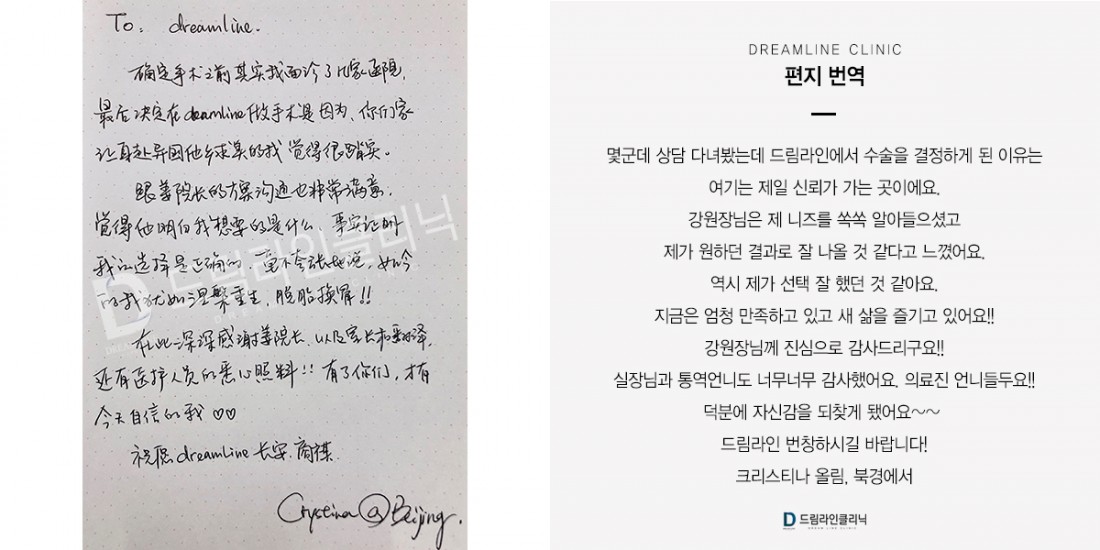 To. dreamline.
确定手术之前其实我面诊了几家医院,
最后决定在dreamline做手术是因为、你们家
让身赴异国他乡求美的我觉得很踏实。
跟姜院长的方案沟通也非常满意.
觉得他明白我想要的是什么、事实证明
我的选择是正确的 毫不夸张地说, 如今
的我犹如涅槃重生, 脱胎换骨!!
在此深深感谢姜院长、以及室长和翻译,
还有医护人员的悉心照料!! 有了你们, 才有
今天自信的我♡♡
祝愿dreamline长安.商祺.
Crystina@Beijing.
드림라인클리닉
DREAMLINE CLINIC
편지 번역
몇군데 상담 다녀봤는데 드림라인에서 수술을 결정하게 된 이유는
여기는 제일 신뢰가 가는 곳이에요.
강원장님은 제 니즈를 쏙쏙 알아들으셨고
제가 원하던 결과로 잘 나올 것 같다고 느꼈어요.
역시 제가 선택 잘 했던 것 같아요.
지금은 엄청 만족하고 있고 새 삶을 즐기고 있어요!!
강원장님께 진심으로 감사드리구요!!
실장님과 통역언니도 너무너무 감사했어요. 의료진 언니들두요!!
덕분에 자신감을 되찾게 됐어요~~
드림라인 번창하시길 바랍니다!
크리스티나 올림, 북경에서
드림라인클리닉
DREAM LINE CLINIC